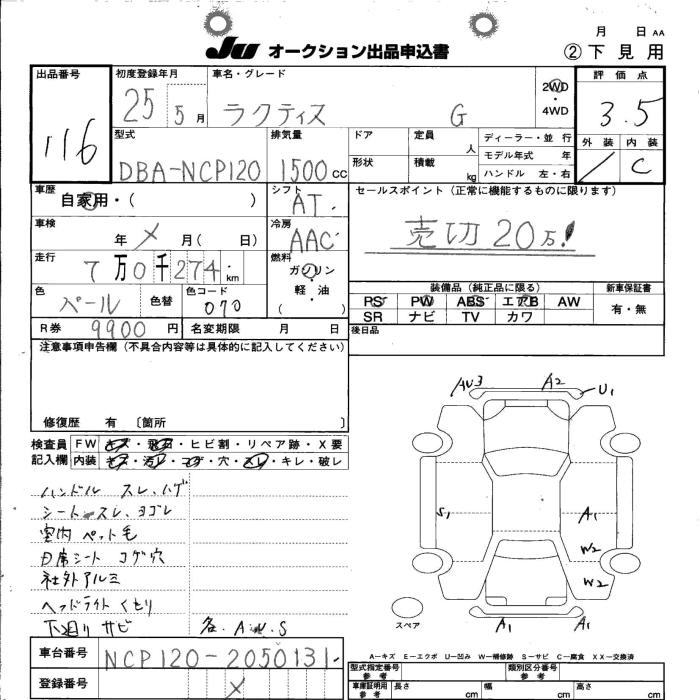 月 日 AA
JU オークション出品申込書 ②下見用
出品番号 116
初度登録年月 25 5月
車名・グレード ラクティス G
2WD・4WD
評価点 3.5
外装 / 内装 C
型式 DBA-NCP120
排気量 1500cc
ドア 定員 人
形状 積載 kg
ディーラー・並行
モデル年式 年
ハンドル 左・右
車歴 自家用・( )
シフト AT
セールスポイント(正常に機能するものに限ります)
売切20万!
車検 年 × 月( 日)
冷房 AAC
走行 7万0千274km
燃料 ガソリン 軽・油 ( )
色 パール 色替 色コード 070
装備品(純正品に限る) 新車保証書
PS PW ABS エアB AW 有・無
SR ナビ TV カワ
R券 9900円 名変期限 月 日
後日品
注意事項申告欄(不具合内容等は具体的に記入してください)
修復歴 有 〔箇所 〕
検査員記入欄
FW キズ・飛石・ヒビ割・リペア跡・X要
内装 キズ・汚レ・コゲ・穴・スレ・キレ・破レ
ハンドル スレ、ハゲ
シート スレ、ヨゴレ
室内 ペット毛
シート コゲ穴
社外アルミ
ヘッドライト くもり
下廻り サビ 各、A、U、S
AU3 A2 U1
S1 A1
W2
W2
A1 A1
スペア
A-キズ E-エクボ U-凹み W-補修跡 S-サビ C-腐食 XX-交換済
車台番号 NCP120-2050131-
登録番号 ×
型式指定番号 参考 類別区分番号 参考
車庫証明用 参考 長さ cm 幅 cm 高さ cm